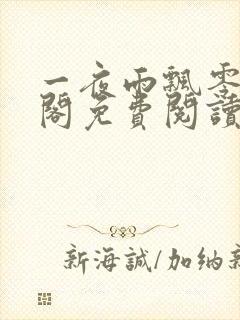 一夜雨飄零
閣免費閱讀
新海誠/加納新